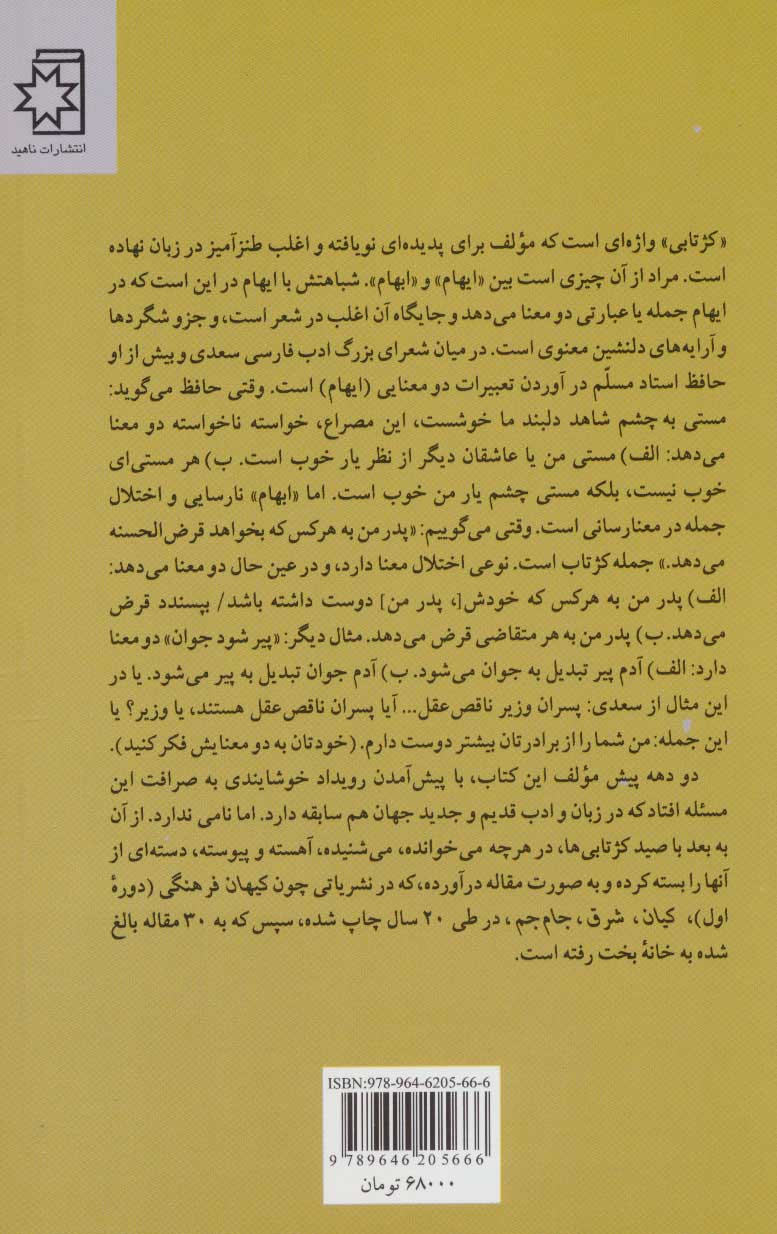 انتشارات ناهید
«کژتابی» واژه‌ای است که مؤلف برای پدیده‌ای نویافته و اغلب طنزآمیز در زبان نهاده
است. مراد از آن چیزی است بین «ایهام» و «ابهام». شباهتش با ایهام در این است که در
ایهام جمله یا عبارتی دو معنا می‌دهد و جایگاه آن اغلب در شعر است، و جزو شگردها
و آرایه‌های دلنشین معنوی است. در میان شعرای بزرگ ادب فارسی سعدی و بیش از او
حافظ استاد مسلّم در آوردن تعبیرات دو معنایی (ایهام) است. وقتی حافظ می‌گوید:
مستی به چشم شاهد دلبند ما خوشست، این مصراع، خواسته ناخواسته دو معنا
می‌دهد: الف) مستی من یا عاشقان دیگر از نظر یار خوب است. ب) هر مستی‌ای
خوب نیست، بلکه مستی چشم یار من خوب است. اما «ابهام» نارسایی و اختلال
جمله در معنارسانی است. وقتی می‌گوییم: «پدر من به هرکس که بخواهد قرض‌الحسنه
می‌دهد.» جمله کژتاب است. نوعی اختلال معنا دارد، و در عین حال دو معنا می‌دهد:
الف) پدر من به هرکس که خودش[، پدر من] دوست داشته باشد/ بپسندد قرض
می‌دهد. ب) پدر من به هر متقاضی قرض می‌دهد. مثال دیگر: «پیر شود جوان» دو معنا
دارد: الف) آدم پیر تبدیل به جوان می‌شود. ب) آدم جوان تبدیل به پیر می‌شود. یا در
این مثال از سعدی: پسران وزیر ناقص‌عقل... آیا پسران ناقص‌عقل هستند، یا وزیر؟ یا
این جمله: من شما را از برادرتان بیشتر دوست دارم. (خودتان به دو معنایش فکر کنید).
دو دهه پیش مؤلف این کتاب، با پیش‌آمدن رویداد خوشایندی به صرافت این
مسئله افتاد که در زبان و ادب قدیم و جدید جهان هم سابقه دارد. اما نامی ندارد. از آن
به بعد با صید کژتابی‌ها، در هرچه می‌خوانده، می‌شنیده، آهسته و پیوسته، دسته‌ای از
آنها را بسته کرده و به صورت مقاله درآورده، که در نشریاتی چون کیهان فرهنگی (دورهٔ
اول)، کیان، شرق، جام‌جم، در طی ۲۰ سال چاپ شده، سپس که به ۳۰ مقاله بالغ
شده به خانهٔ بخت رفته است.
ISBN:978-964-6205-66-6
9 789646 205666
۶۸۰۰۰ تومان